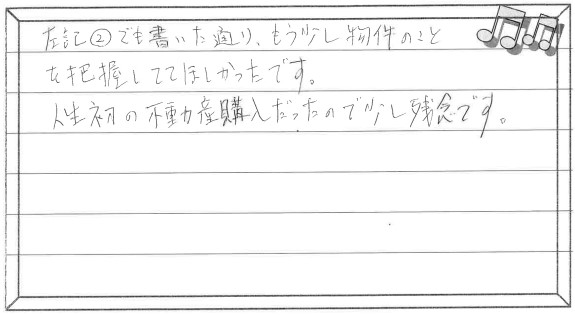 左記②でも書いた通り、もう少し物件のこと
を把握しててほしかったです。
人生初の不動産購入だったので少し残念です。